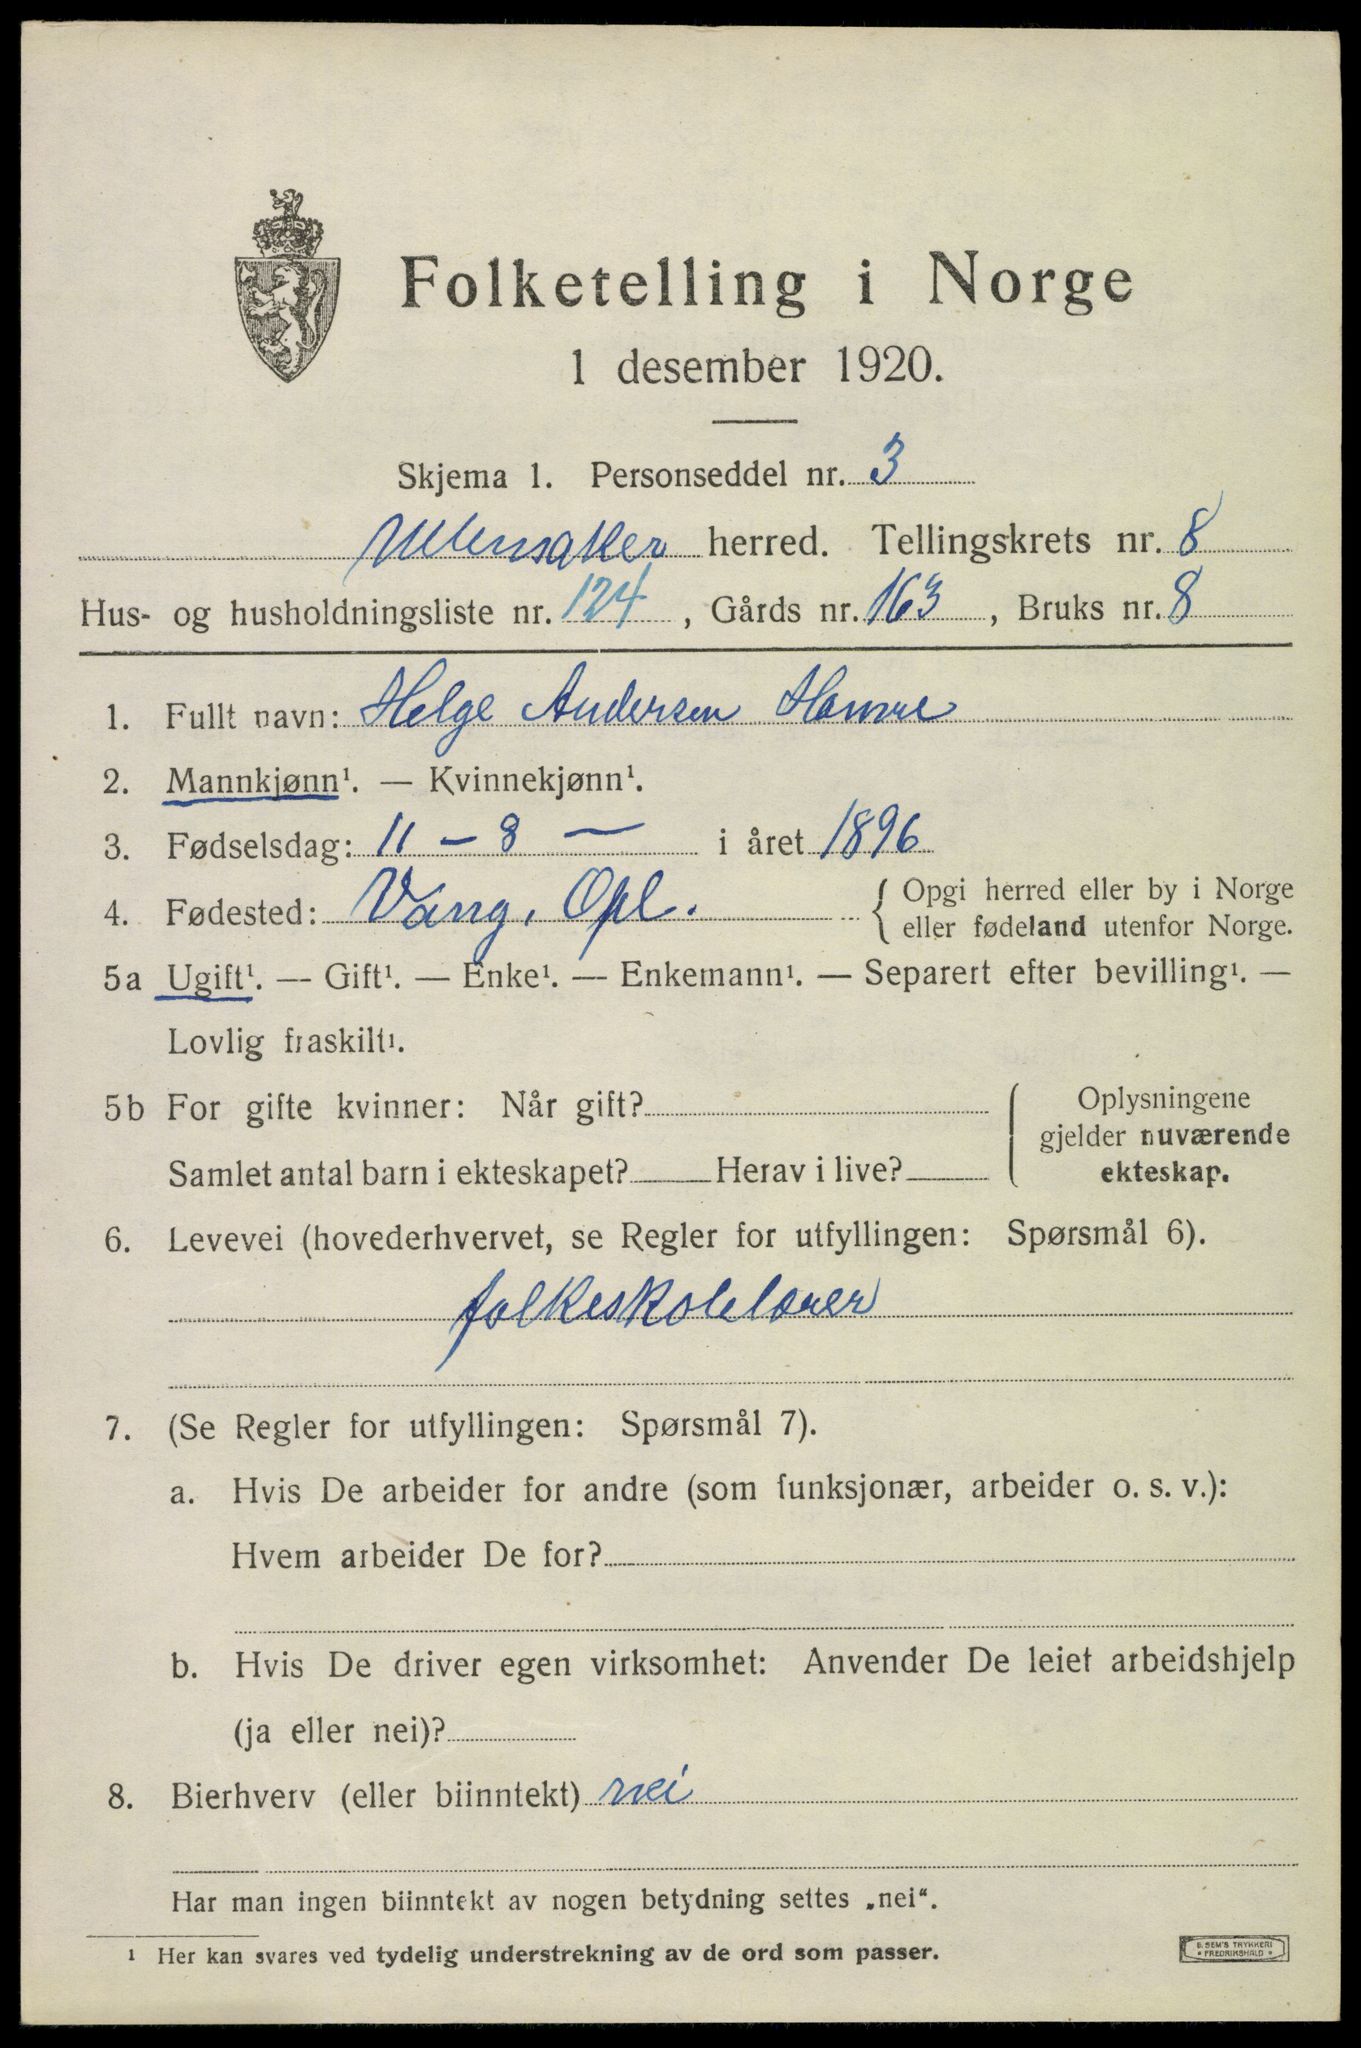 Folketelling i Norge
1 desember 1920.
Skjema 1. Personseddel nr. 3
Ullensaker herred. Tellingskrets nr. 8
Hus- og husholdningsliste nr. 124, Gårds nr. 163, Bruks nr. 8
1. Fullt navn: Helge Andersen Hamre
2. Mannkjønn¹. — Kvinnekjønn¹.
3. Fødselsdag: 11 – 8 — i året 1896
4. Fødested: Vang, Opl. { Opgi herred eller by i Norge
eller fødeland utenfor Norge.
5a Ugift¹. — Gift¹. — Enke¹. — Enkemann¹. — Separert efter bevilling¹. —
Lovlig fraskilt¹.
5b For gifte kvinner: Når gift?
Samlet antal barn i ekteskapet? Herav i live?
Oplysningene
gjelder nuværende
ekteskap.
6. Levevei (hovederhvervet, se Regler for utfyllingen: Spørsmål 6).
folkeskolelærer
7. (Se Regler for utfyllingen: Spørsmål 7).
a. Hvis De arbeider for andre (som funksjonær, arbeider o. s. v.):
Hvem arbeider De for?
b. Hvis De driver egen virksomhet: Anvender De leiet arbeidshjelp
(ja eller nei)?
8. Bierhverv (eller biinntekt) nei
Har man ingen biinntekt av nogen betydning settes „nei“.
¹ Her kan svares ved tydelig understrekning av de ord som passer.
B. SEM'S TRYKKERI
• FREDRIKSHALD •